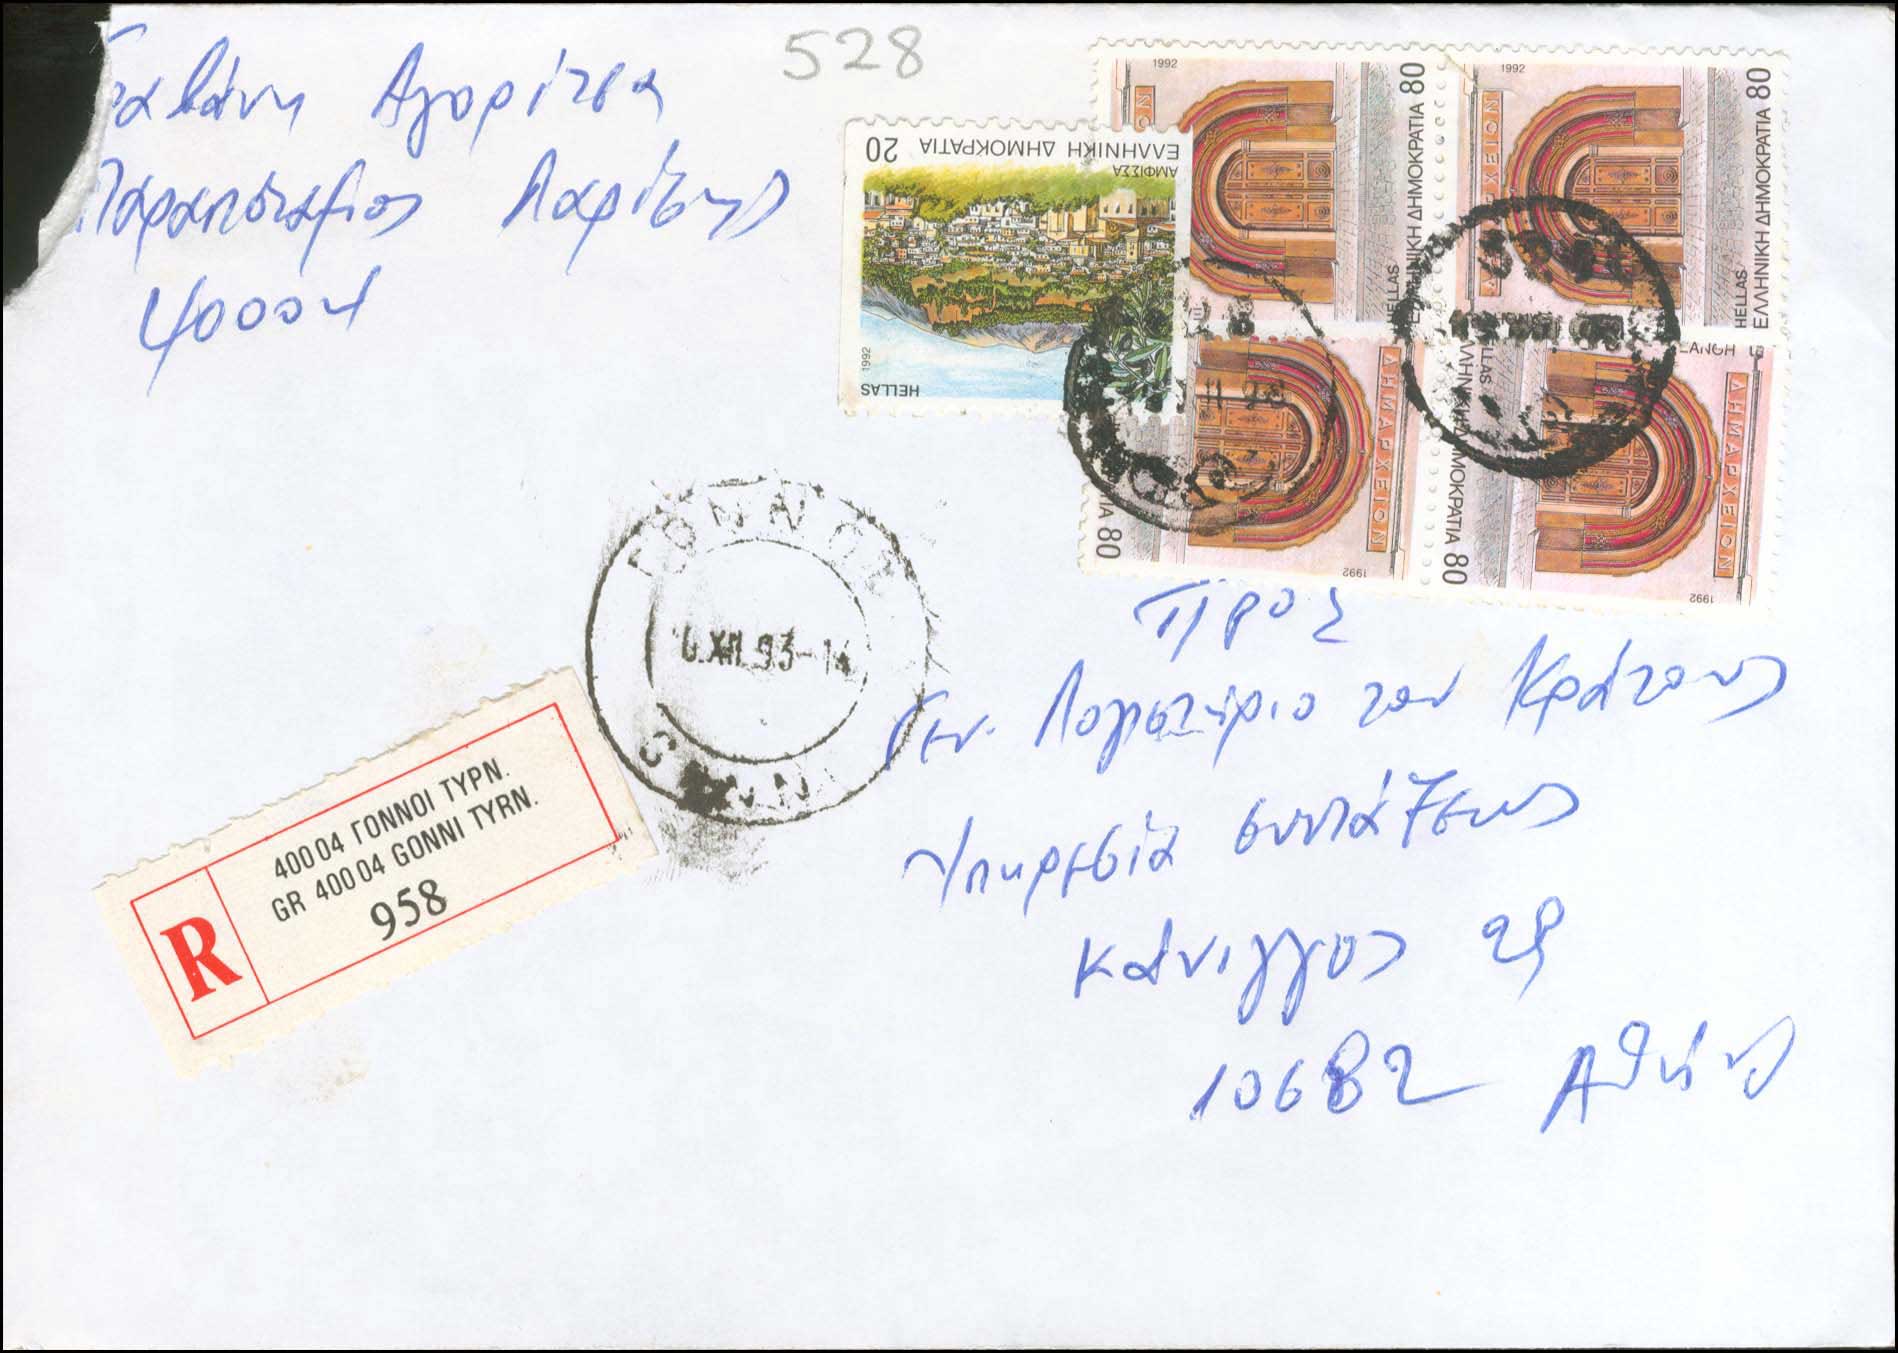 528
Αγορίτσα
Παραποτάμιος Λαρίσης
40004
1992
ΕΛΛΗΝΙΚΗ ΔΗΜΟΚΡΑΤΙΑ 80
HELLAS
1992
ΕΛΛΗΝΙΚΗ ΔΗΜΟΚΡΑΤΙΑ 80
HELLAS
20 ΕΛΛΗΝΙΚΗ ΔΗΜΟΚΡΑΤΙΑ
ΑΜΦΙΣΣΑ
HELLAS 1992
ΔΗΜΑΡΧΕΙΟΝ
80
1992
ΔΗΜΑΡΧΕΙΟΝ
80
1992
ΓΟΝΝΟΙ
XII.93-14
GONNI
R
400 04 ΓΟΝΝΟΙ ΤΥΡΝ.
GR 400 04 GONNI TYRN.
958
Προς
Γεν. Λογιστήριο του Κράτους
Υπηρεσία συντάξεως
Κάνιγγος 29
10682 Αθήνα